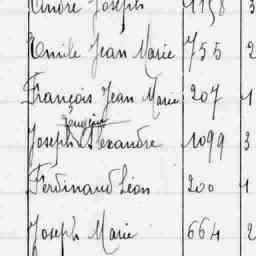 André Joseph 1158 3
Emile Jean Marie 755 2
François Jean Marie 207 1
Joseph Alexandre 1099 3
Ferdinand Léon 200 1
Joseph Marie 664 2